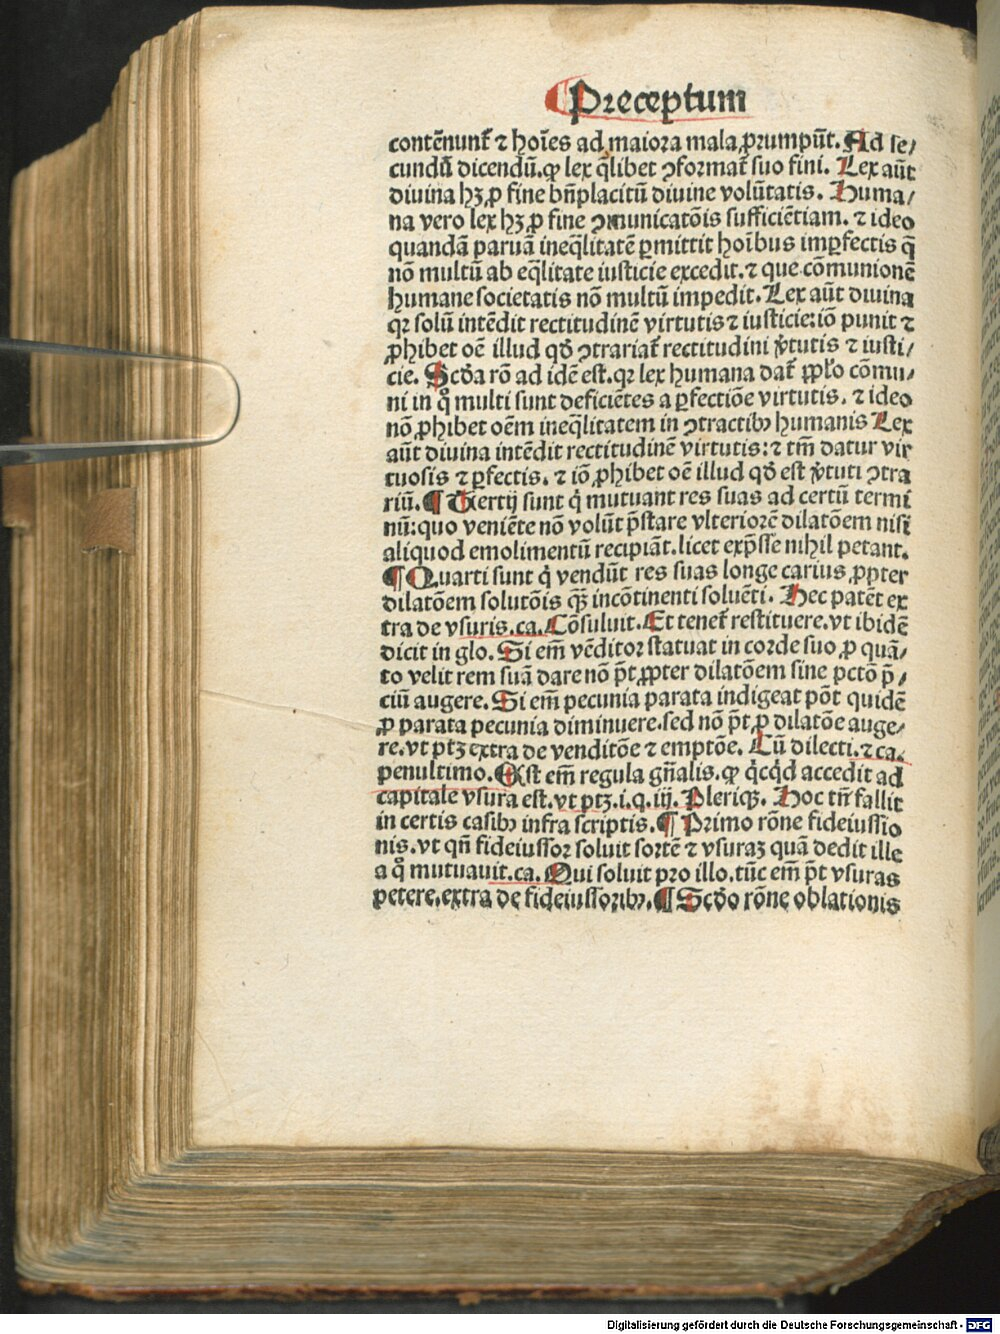 ¶ Preceptum
contēnunt᷑ ⁊ hoīes ad maiora mala ꝓrumpūt. Ad se/
cundū dicendū. ꝙ lex q̄libet ꝯformat᷑ suo fini. Lex aūt
diuina hꝫ ꝓ fine bn̄placitū diuine volūtatis. Huma/
na vero lex hꝫ ꝓ fine ꝯmunicatōis sufficiētiam. ⁊ ideo
quandā paruā ineq̄litatē ꝑmittit hoībus imꝑfectis q̄
nō multū ab eq̄litate iusticie excedit. ⁊ que cōmunionē
humane societatis nō multū impedit. Lex aūt diuina
qꝛ solū intēdit rectitudinē virtutis ⁊ iusticie: iō punit ⁊
ꝓhibet oē illud qd̄ ꝯtrariat᷑ rectitudini v̓tutis ⁊ iusti/
cie. Scd̓a rō ad idē est. qꝛ lex humana dat᷑ ppl̓o cōmu/
ni in qͦ multi sunt deficiētes a ꝑfectiōe virtutis. ⁊ ideo
nō ꝓhibet oēm ineq̄litatem in ꝯtractibꝫ humanis Lex
aūt diuina intēdit rectitudinē virtutis: ⁊ tm̄ datur vir
tuosis ⁊ ꝑfectis. ⁊ iō ꝓhibet oē illud qd̄ est v̓tuti ꝯtra
riū. ¶ Tertij sunt qͥ mutuant res suas ad certū termi
nū: quo veniēte nō volūt p̄stare vlteriorē dilatōem nisi
aliquod emolimentū recipiāt. licet exp̄sse nihil petant.
¶ Quarti sunt qͥ vendūt res suas longe carius ꝓpter
dilatōem solutōis qꝫ̄ incōtinenti soluēti. Hec patēt ex
tra de vsuris. ca. Cōsuluit. Et tenet᷑ restituere. vt ibidē
dicit in glo. Si em̄ vēditor statuat in corde suo ꝓ quā/
to velit rem suā dare nō p̄t ꝓpter dilatōem sine pctō p̄/
ciū augere. Si em̄ pecunia parata indigeat pōt quidē
ꝓ parata pecunia diminuere. sed nō p̄t ꝓ dilatōe auge/
re. vt ptꝫ extra de venditōe ⁊ emptōe. Cū dilecti. ⁊ ca.
penultimo. Est em̄ regula gn̄alis. ꝙ qͥcqͥd accedit ad
capitale vsura est. vt ptꝫ. i. q. iij. Pleriqꝫ. Hoc tn̄ fallit
in certis casibꝫ infra scriptis. ¶ Primo rōne fideiussio
nis. vt qn̄ fideiussor soluit sortē ⁊ vsuraꝫ quā dedit ille
a qͦ mutuauit. ca. Qui soluit pro illo. tūc em̄ p̄t vsuras
petere. extra de fideiussoribꝫ. ¶ Scd̓o rōne oblationis
Digitalisierung gefördert durch die Deutsche Forschungsgemeinschaft - DFG